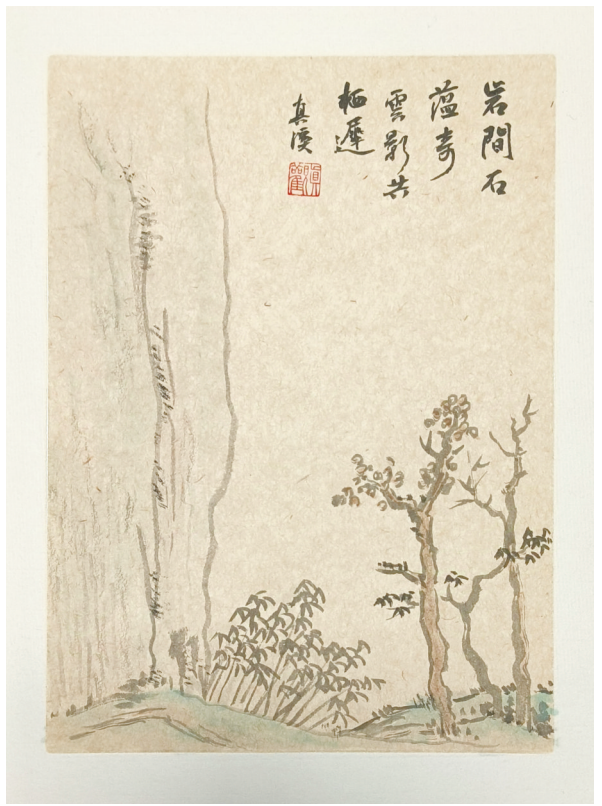 岩間石
蕴奇
雲影共
栖遲
真溪